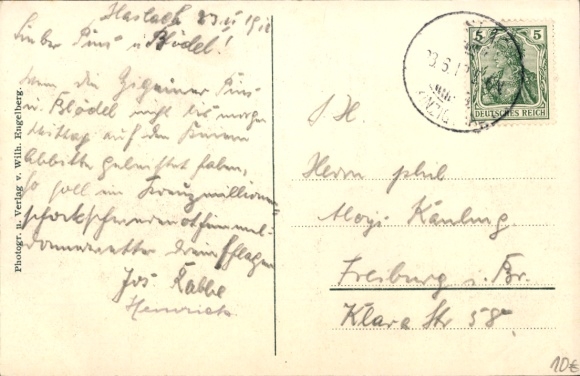 Haslach 23. 5. 19
Lieber Pius u. Blödel!
Wenn die Zigeuner Pius
u. Blödel nicht bis morgen
Mittag auf den Knien
Abbitte geleistet haben,
so soll ein Kreuzmillionen-
donnerwetter dreinschlagen
Jos Rabbe
Heinrich
Photogr. u. Verlag v. Wilh. Engelberg.
5 5
DEUTSCHES REICH
S. H.
Herrn phil
Aloys
Freiburg i. Br.
Klara Str 58
10€